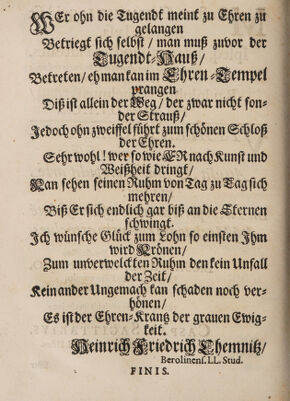 WEr ohn die Tugendt meint zu Ehren zu
gelangen
Betriegt sich selbst / man muß zuvor der
Tugendt-Hauß /
Betreten / eh man kan im Ehren-Tempel
prangen
Diß ist allein der Weg / der zwar nicht son-
der Strauß /
Jedoch ohn zweiffel führt zum schönen Schloß
der Ehren.
Sehr wohl! wer so wie ER nach Kunst und
Weißheit dringt /
Kan sehen seinen Ruhm von Tag zu Tag sich
mehren /
Biß Er sich endlich gar biß an die Sternen
schwingt.
Ich wünsche Glück zum Lohn so einsten Ihm
wird Krönen /
Zum unverwelckten Ruhm den kein Unfall
der Zeit /
Kein ander Ungemach kan schaden noch ver-
hönen /
Es ist der Ehren-Krantz der grauen Ewig-
keit.
Heinrich Friedrich Chemnitz /
Berolinens. LL. Stud.
FINIS.